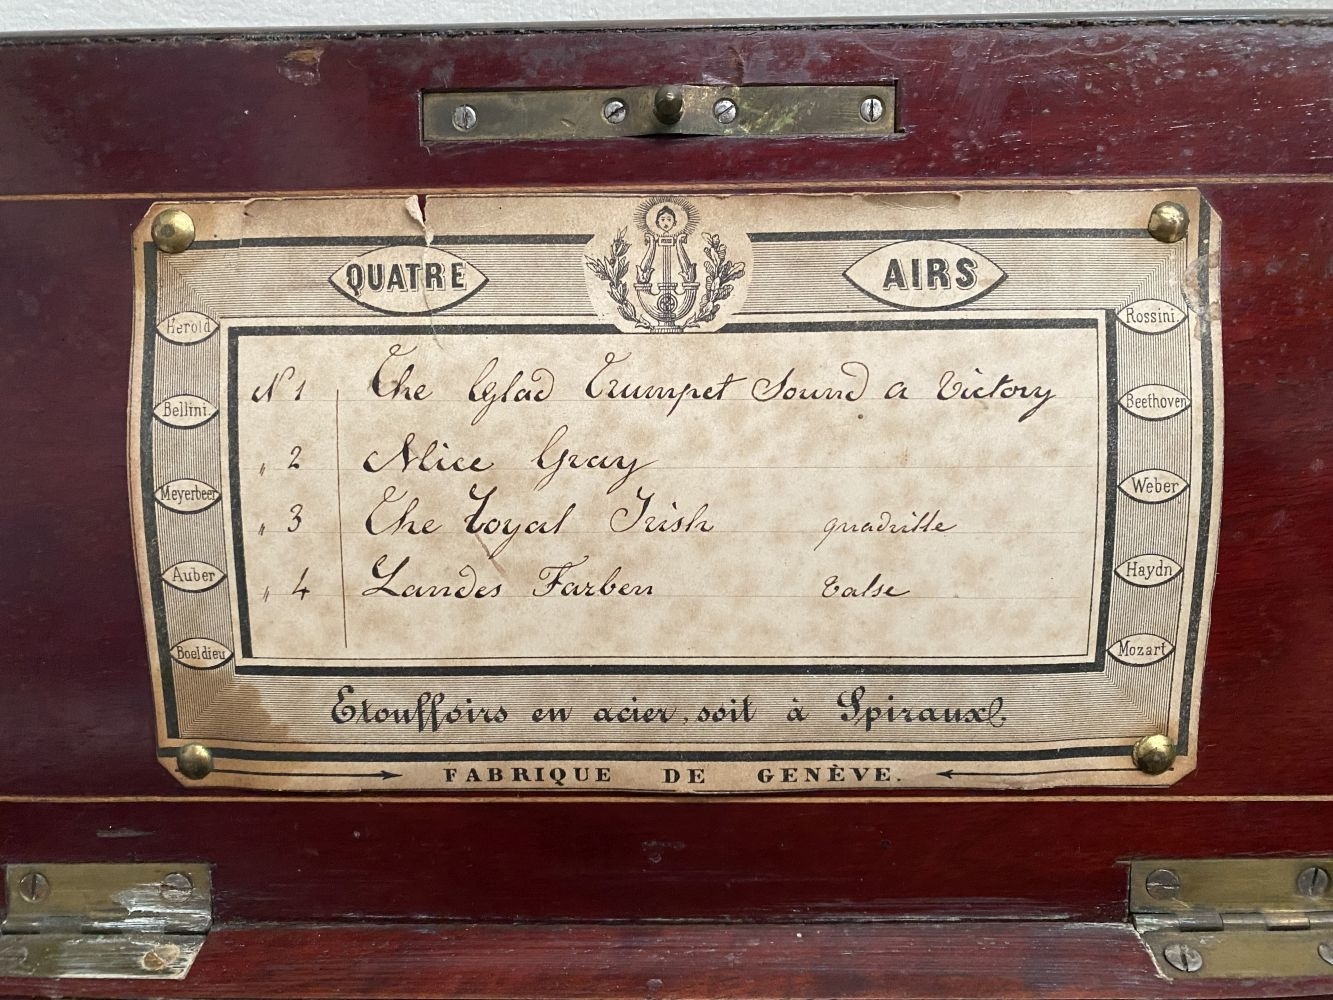 QUATRE AIRS
Herold
Bellini.
Meyerbeer
Auber
Boeldieu
Rossini.
Beethoven
Weber
Haydn
Mozart
N 1 The Glad Trumpet Sound a Victory
" 2 Alice Gray
" 3 The Royal Irish quadrille
" 4 Landes Farben valse
Etouffoirs en acier, soit à Spiraux
FABRIQUE DE GENÈVE.